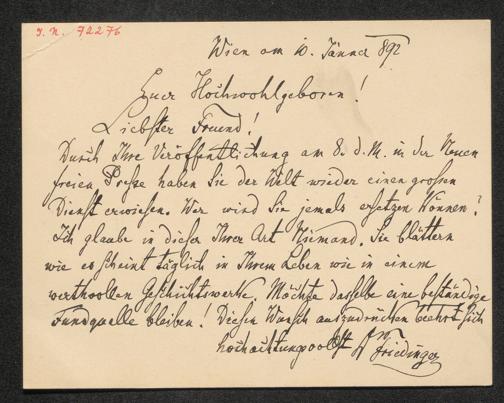 I. N. 72276
Wien am 10. Jänner 892
Euer Hochwohlgeboren!
Liebster Freund!
Durch Ihre Veröffentlichung am 8. d. M. in der Neuen
freien Presse haben Sie der Welt wieder einen großen
Dienst erwiesen. Wer wird Sie jemals ersetzen können?
Ich glaube in dieser Ihrer Art Niemand. Sie blättern
wie es scheint täglich in Ihrem Leben wie in einem
werthvollen Geschichtswerke. Möchte dasselbe eine beständige
Fundquelle bleiben! Diesen Wunsch auszudrücken beehrt sich
hochachtungsvollst